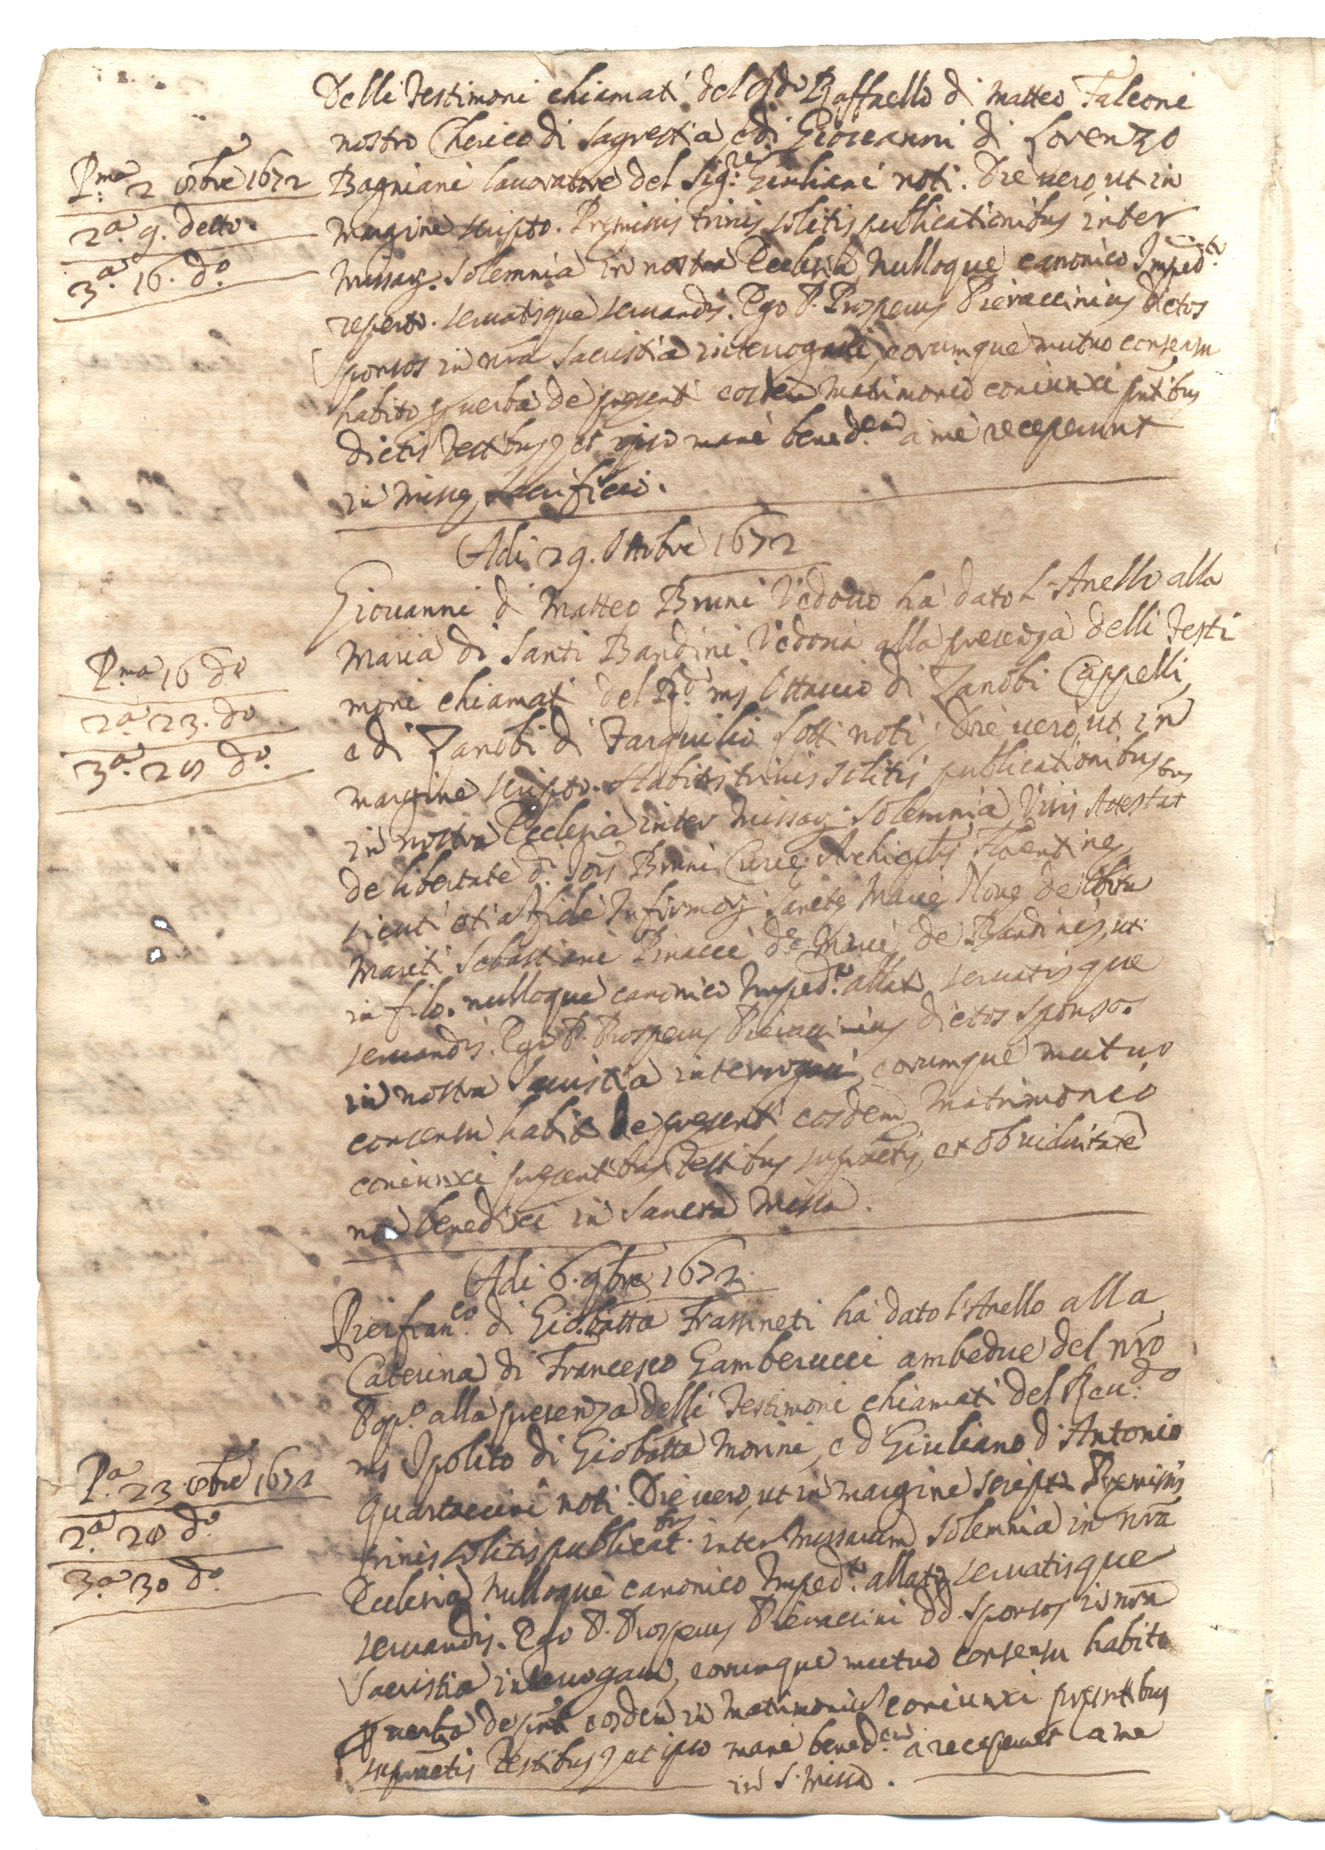 Delli Testimoni chiamati del Rdo Raffaello di Matteo Falconi
nostro Cherico di Sagrestia, e di Giovanni di Lorenzo
Pma 2 8bre 1672
Bagniani lavoratore del Sig.re Giuliani noti. Die vero, ut in
2a 9. detto.
margine scripto. Premissis trinis solitis publicationibus inter
3a 16. do
Missarum solemnia in nostra Ecclesia Nulloque canonico Impedto
reperto. servatisque servandis. Ego P. Prosperus Pieraccinius dictos
sponsos in nra Sacristia interrogavi, eorumque mutuo consensu
habito per verba de presenti eosdem matrimonio coniunxi pntibus
dictis Testibus, et ipso mane bened.em a me receperunt
in Misse sacrificio.
Adi 29. Ottobre 1672
Giovanni di Matteo Bruni Vedovo ha dato l'Anello alla
Maria di Santi Bandini Vedova alla presenza delli Testi
Pma 16 do
moni chiamati del Rdo ms Ottavio di Zanobi Cappelli,
2a 23. do
e di Zanobi di Tarquilio Lotti noti; Die vero, ut in
3a 28 do
margine scripto. Habitis trinis solitis publicationibus
in nostra Ecclesia inter Missarum solemnia, Visis Atestatbus
de libertate di Jois Bruni Curie Archieplis Florentine,
sicuti etia fide Infirmorum Sancte Marie Nove de obitu
Mariti Sebastiani Pinacci de Marie de Bandinis, ut
in filo. nulloque canonico Imped.to allato servatisque
servandis. Ego P. Prosperus Pieraccinius dictos sponsos
in nostra Sacristia interrogavi, eorumque mutuo
consensu habito de presenti eosdem Matrimonio
coniunxi presentibus Testibus supradictis, et ob viduitate
non benedixi in Sancta Missa.
Adi 6. 9bre 1672
Pierfranco di Giobatta Frassineti ha dato l'Anello alla
Caterina di Francesco Gamberucci ambedue del nro
Popo alla presenza delli Testimoni chiamati del Reu.do
ms Ipolito di Giobatta Morini, e di Giuliano d'Antonio
Pa 23 8bre 1672
Quartaccini noti. Die vero, ut in margine scripto Premissis
2a 28 do
trinis solitis publicat.bus inter Missarum solemnia in nra
3a 30 do
Ecclesia Nulloque canonico Imped.to allato servatisque
servandis. Ego P. Prosperus Pieraccini dd. sponsos in nra
Sacristia interrogavi, eorumque mutuo consensu habito
per verba de pnti eosdem in Matrimonium coniunxi presentibus
supradictis Testibus, et ipso mane bened.em receperunt a me
in S. Missa.